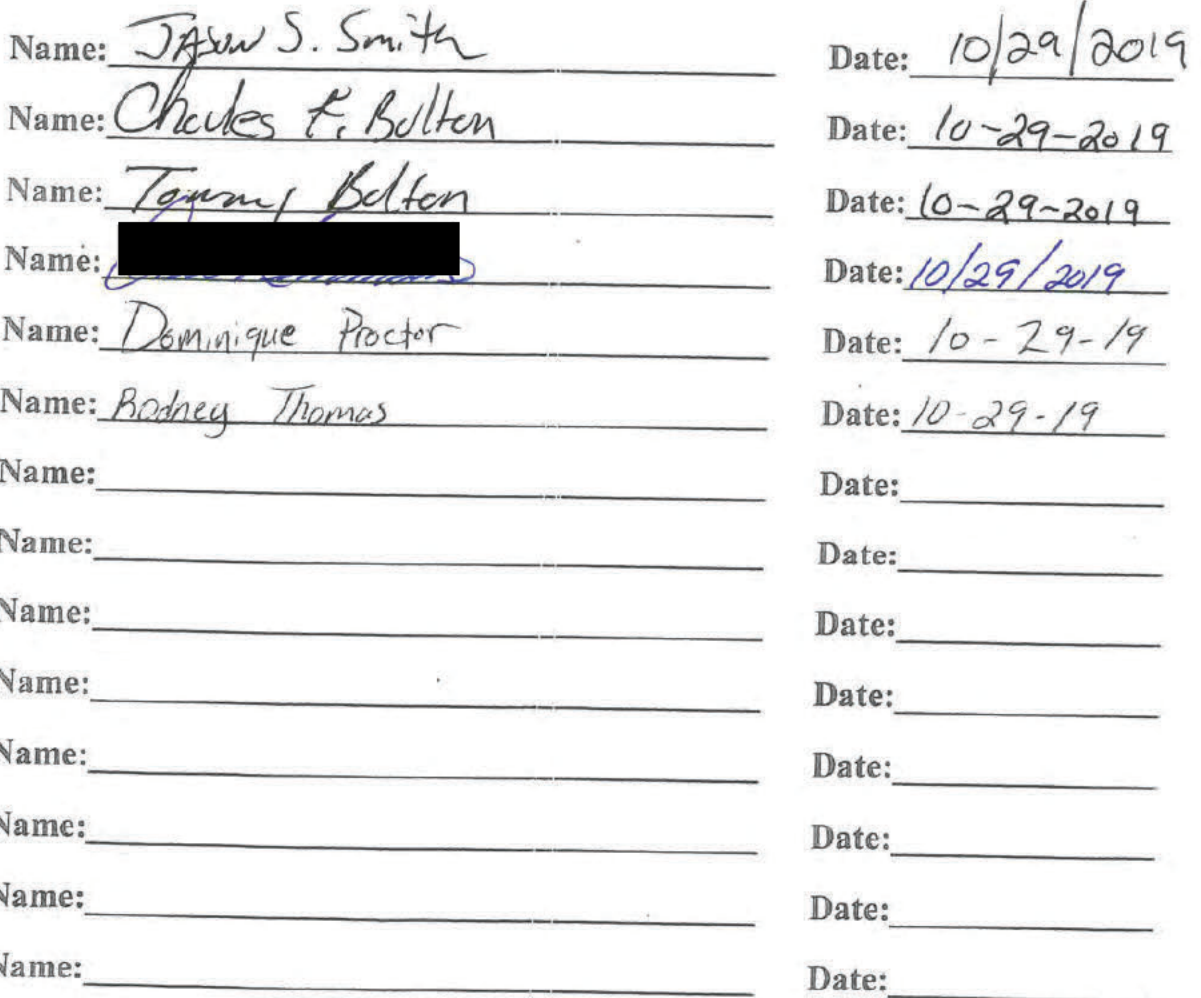 Name: JASON S. Smith Date: 10/29/2019
Name: Charles F. Bolton Date: 10-29-2019
Name: Tommy Bolton Date: 10-29-2019
Name: Date: 10/29/2019
Name: Dominique Proctor Date: 10-29-19
Name: Rodney Thomas Date: 10-29-19
Name: Date:
Name: Date:
Name: Date:
Name: Date:
Name: Date:
Name: Date:
Name: Date:
Name: Date: